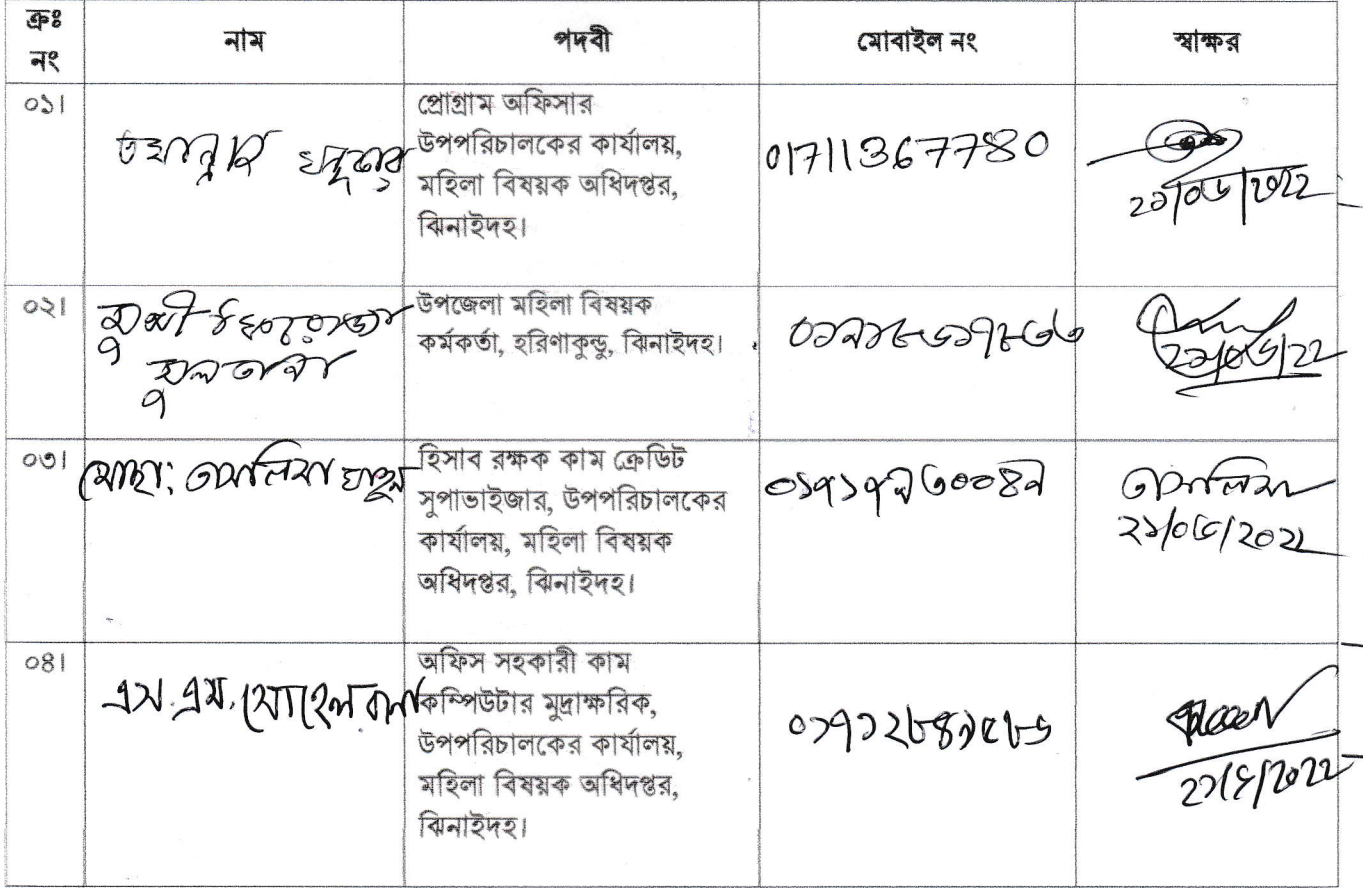 ক্রঃ নং
নাম
পদবী
মোবাইল নং
স্বাক্ষর
০১।
খন্দকার
প্রোগ্রাম অফিসার
উপপরিচালকের কার্যালয়,
মহিলা বিষয়ক অধিদপ্তর,
ঝিনাইদহ।
01711367780
২১/০৬/২০২২
০২।
মুন্সী ফিরোজা
সুলতানা
উপজেলা মহিলা বিষয়ক
কর্মকর্তা, হরিণাকুন্ডু, ঝিনাইদহ।
২১/০৬/২২
০৩।
মোছা: তাসলিমা খাতুন
হিসাব রক্ষক কাম ক্রেডিট
সুপাভাইজার, উপপরিচালকের
কার্যালয়, মহিলা বিষয়ক
অধিদপ্তর, ঝিনাইদহ।
তাসলিমা
২১/০৬/২০২২
০৪।
এস.এম. সোহেল রানা
অফিস সহকারী কাম
কম্পিউটার মুদ্রাক্ষরিক,
উপপরিচালকের কার্যালয়,
মহিলা বিষয়ক অধিদপ্তর,
ঝিনাইদহ।
০১৭১২৮৪১৫৮৬
২১/৬/২০২২